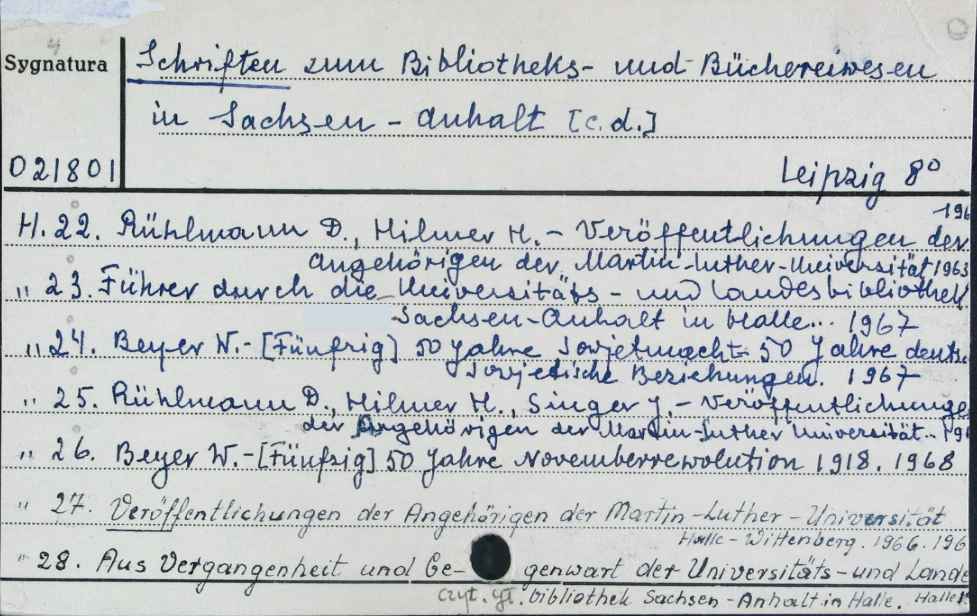 Sygnatura
Schriften zum Bibliotheks- und Büchereiwesen
in Sachsen-Anhalt [c.d.]
021801
Leipzig 8°
196
H. 22. Rühlmann D., Hilmer H. - Veröffentlichungen der
Angehörigen der Martin-Luther-Universität 1963
" 23. Führer durch die Universitäts- und Landesbibliothek
Sachsen-Anhalt in Halle... 1967
" 24. Beyer W. - [Fünfzig] 50 Jahre Sovjetmacht - 50 Jahre deuts
sovjetische Beziehungen. 1967
" 25. Rühlmann D., Hilmer H., Singer J. - Veröffentlichunge
der Angehörigen der Martin-Luther Universität.. 196
" 26. Beyer W. - [Fünfzig] 50 Jahre Novemberrewolution 1918. 1968
" 27. Veröffentlichungen der Angehörigen der Martin-Luther-Universität
Halle-Wittenberg. 1966. 196
" 28. Aus Vergangenheit und Ge- genwart der Universitäts- und Lande
czyt. gł. bibliothek Sachsen-Anhalt in Halle. Halle